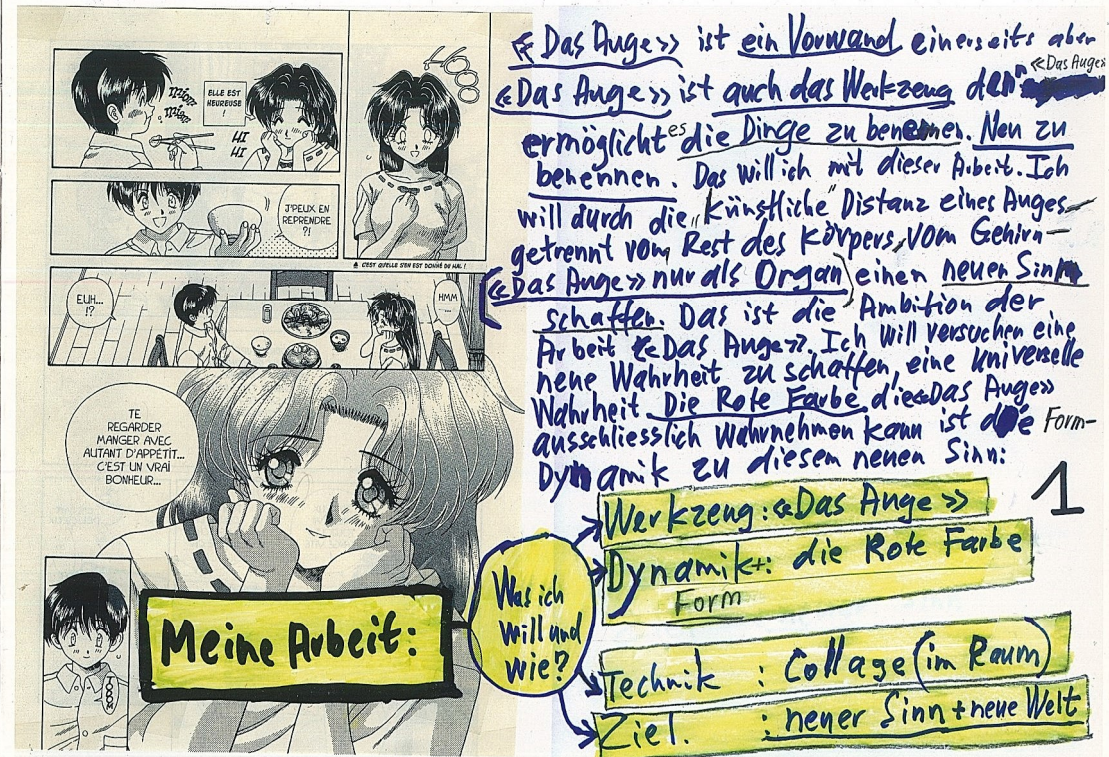 miom
miom
ELLE EST
HEUREUSE
!
HI
HI
J'PEUX EN
REPRENDRE
?!
C'EST QU'ELLE S'EN EST DONNÉ DU MAL !
EUH...
!?
HMM
...
TE
REGARDER
MANGER AVEC
AUTANT D'APPÉTIT...
C'EST UN VRAI
BONHEUR...
Meine Arbeit:
«Das Auge» ist ein Vorwand einerseits aber
«Das Auge» ist auch das Werkzeug denn «Das Auge»
ermöglicht es die Dinge zu benennen. Neu zu
benennen. Das will ich mit dieser Arbeit. Ich
will durch die „künstliche" Distanz eines Auges
getrennt vom Rest des Körpers, vom Gehirn-
(«Das Auge» nur als Organ) einen neuen Sinn
schaffen. Das ist die Ambition der
Arbeit «Das Auge». Ich will versuchen eine
neue Wahrheit zu schaffen, eine universelle
Wahrheit. Die Rote Farbe die «Das Auge»
ausschliesslich wahrnehmen kann ist die Form-
Dynamik zu diesem neuen Sinn:
1
Was ich
will und
wie?
Werkzeug: «Das Auge»
Dynamik+: die Rote Farbe
Form
Technik : Collage (im Raum)
Ziel. : neuer Sinn + neue Welt